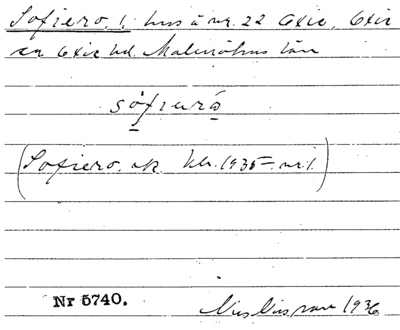 Sofiero, 1. hus å nr. 22 Oxie, Oxie
sn Oxie hd. Malmöhus län
sòfiurå
(Sofiero, ek. kbr. 1935=. nr. 1.)
Nr 5740.
1936